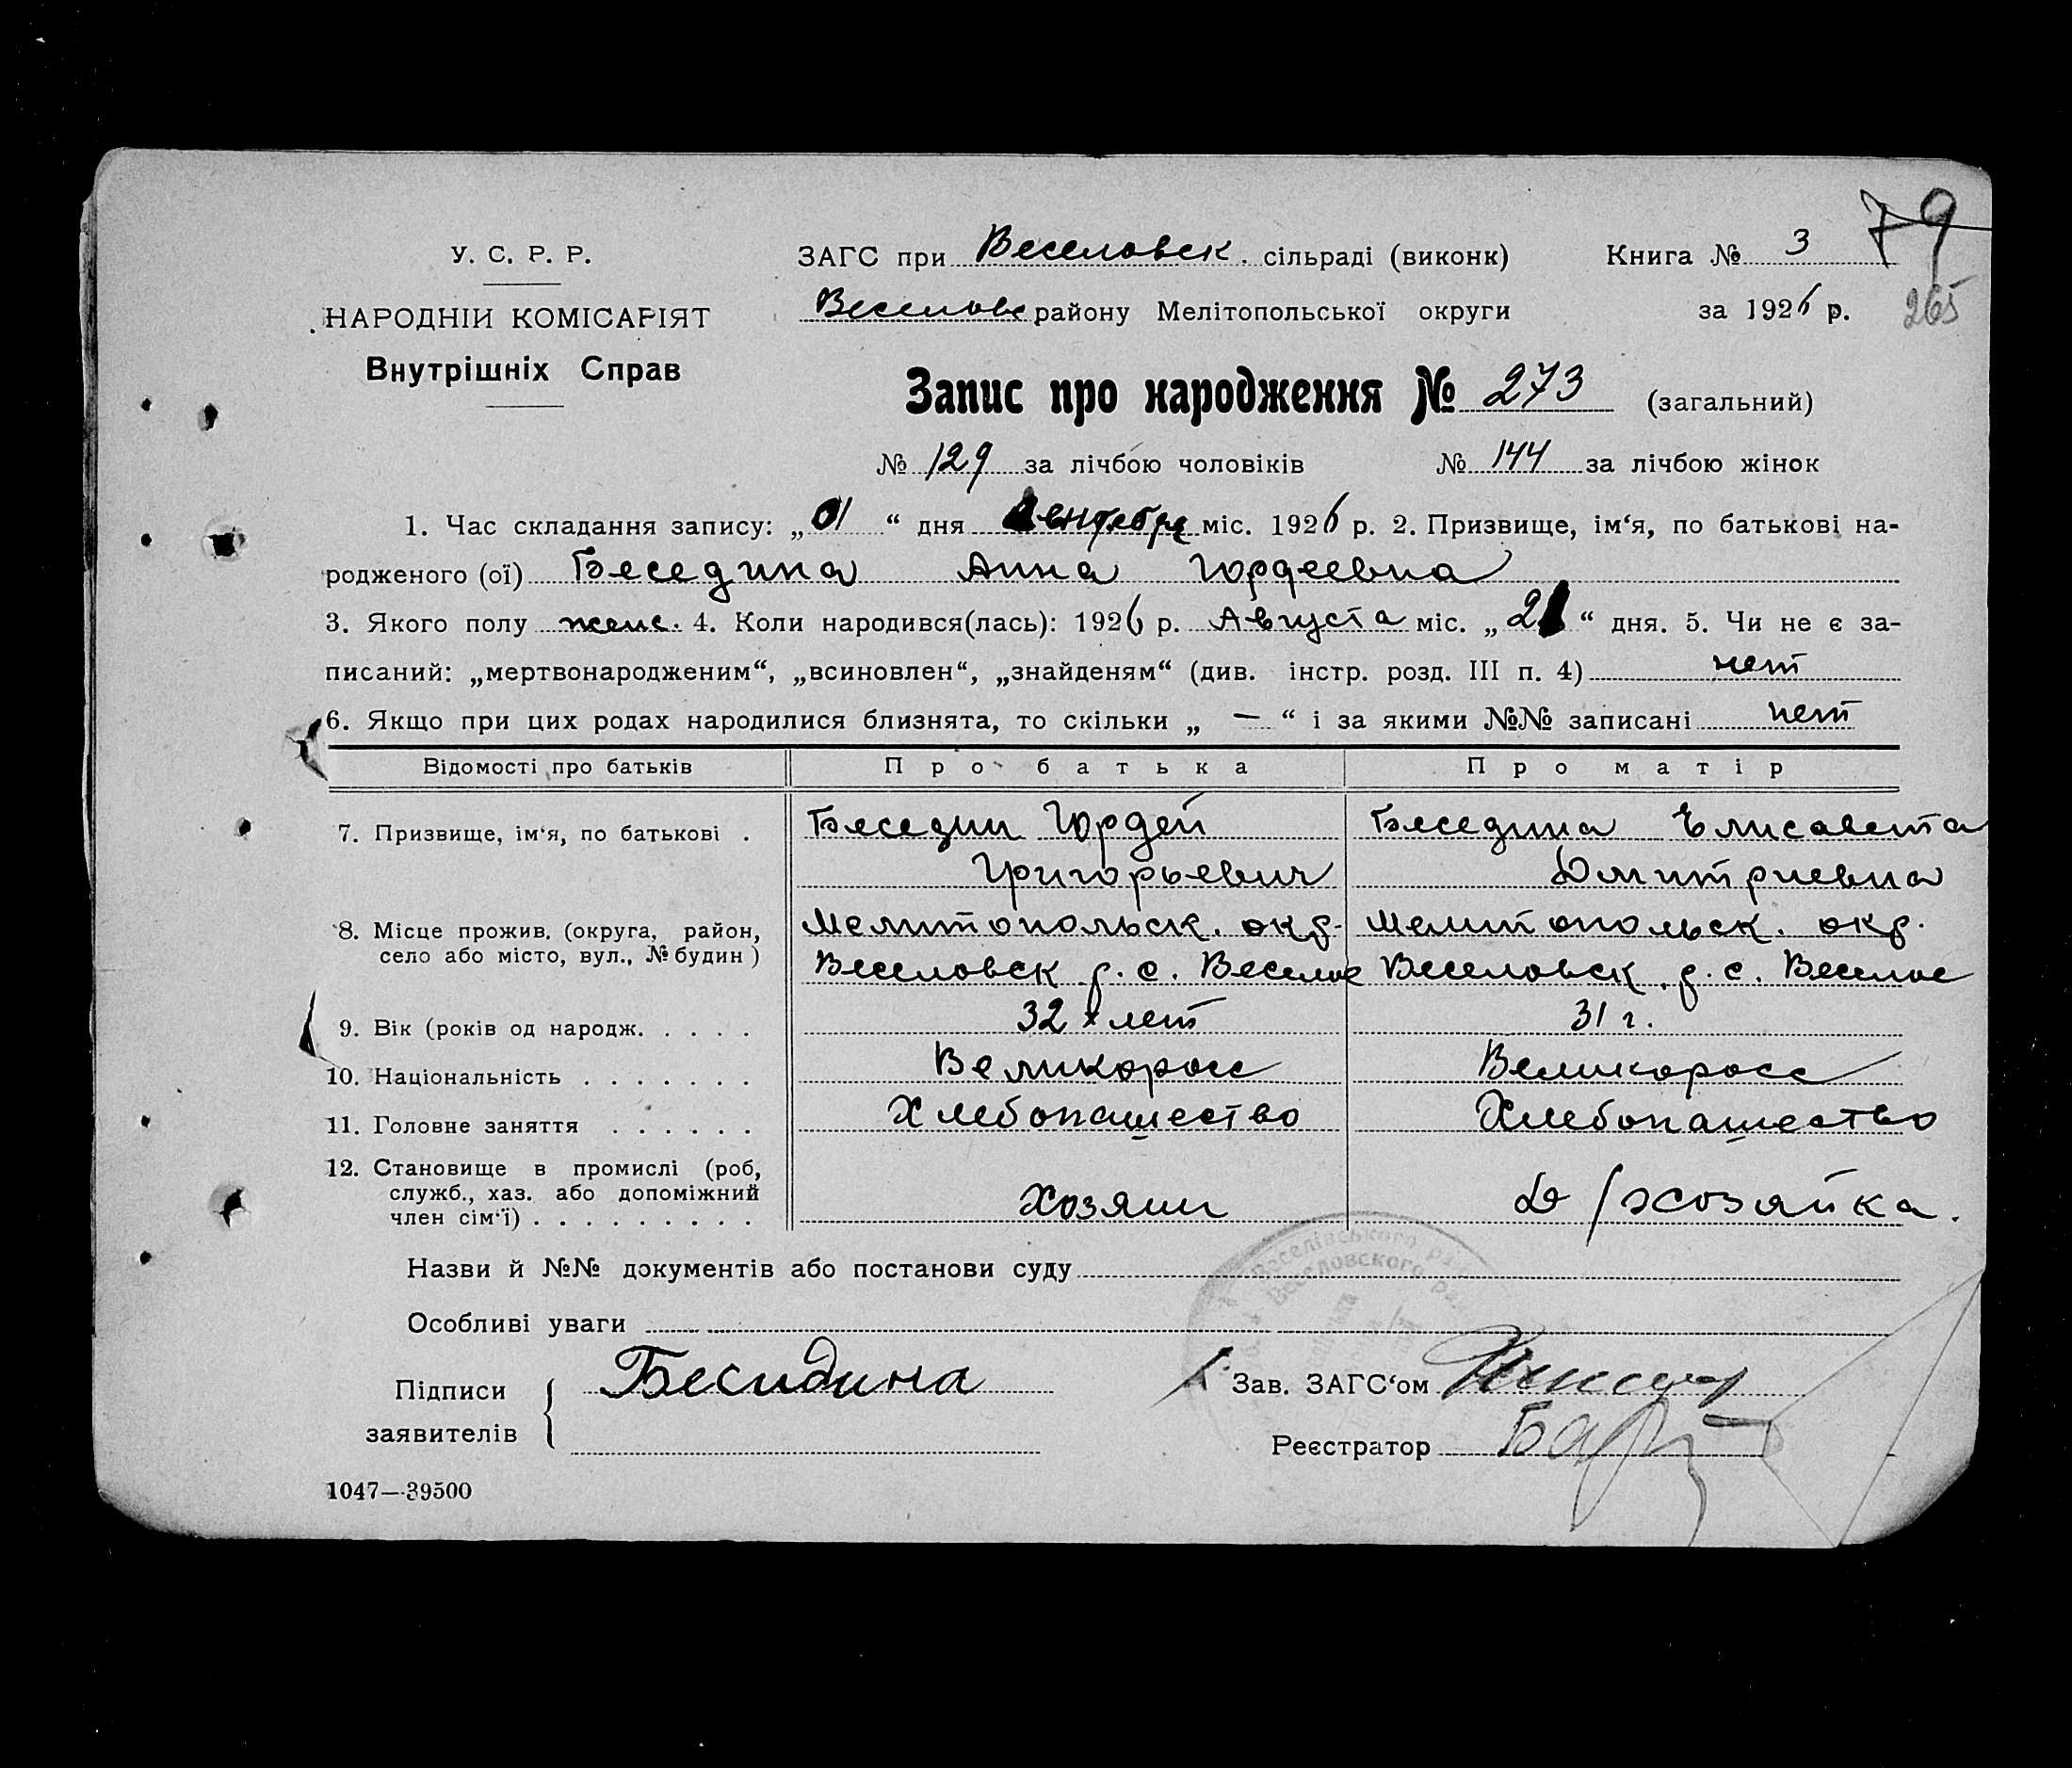 79
265
У. С. Р. Р.
НАРОДНІЙ КОМІСАРІЯТ
Внутрішніх Справ
ЗАГС при Веселовск. сільраді (виконк)
Книга № 3
Веселовс району Мелітопольської округи
за 1926 р.
Запис про народження № 273 (загальний)
№ 129 за лічбою чоловіків № 144 за лічбою жінок
1. Час складання запису: „01“ дня Сентября міс. 1926 р. 2. Призвище, ім‘я, по батькові на-
родженого (ої) Беседина Анна Гордеевна
3. Якого полу женс. 4. Коли народився(лась): 1926 р. Августа міс. „21“ дня. 5. Чи не є за-
писаний: „мертвонародженим“, „всиновлен“, „знайденям“ (див. інстр. розд. III п. 4) нет
6. Якщо при цих родах народилися близнята, то скільки „ — “ і за якими №№ записані нет
Відомості про батьків Про батька Про матір
7. Призвище, ім‘я, по батькові . Беседин Гордей Беседина Елисавета
Григорьевич Дмитриевна
8. Місце прожив. (округа, район, Мелитопольск. окр. Мелитопольск. окр.
село або місто, вул., № будин ) Веселовск р. с. Веселое Веселовск р. с. Веселое
9. Вік (років од народж. . . . . 32 х лет 31 г.
10. Національність . . . . . . . Великоросс Великоросс
11. Головне заняття . . . . . . Хлебопашество Хлебопашество
12. Становище в промислі (роб,
служб., хаз. або допоміжний Хозяин Д/хозяйка.
член сім‘ї) . . . . . . . . .
Назви й №№ документів або постанови суду
Особливі уваги
Підписи Бесидина
заявителів
Зав. ЗАГС‘ом
Реєстратор
1047—39500